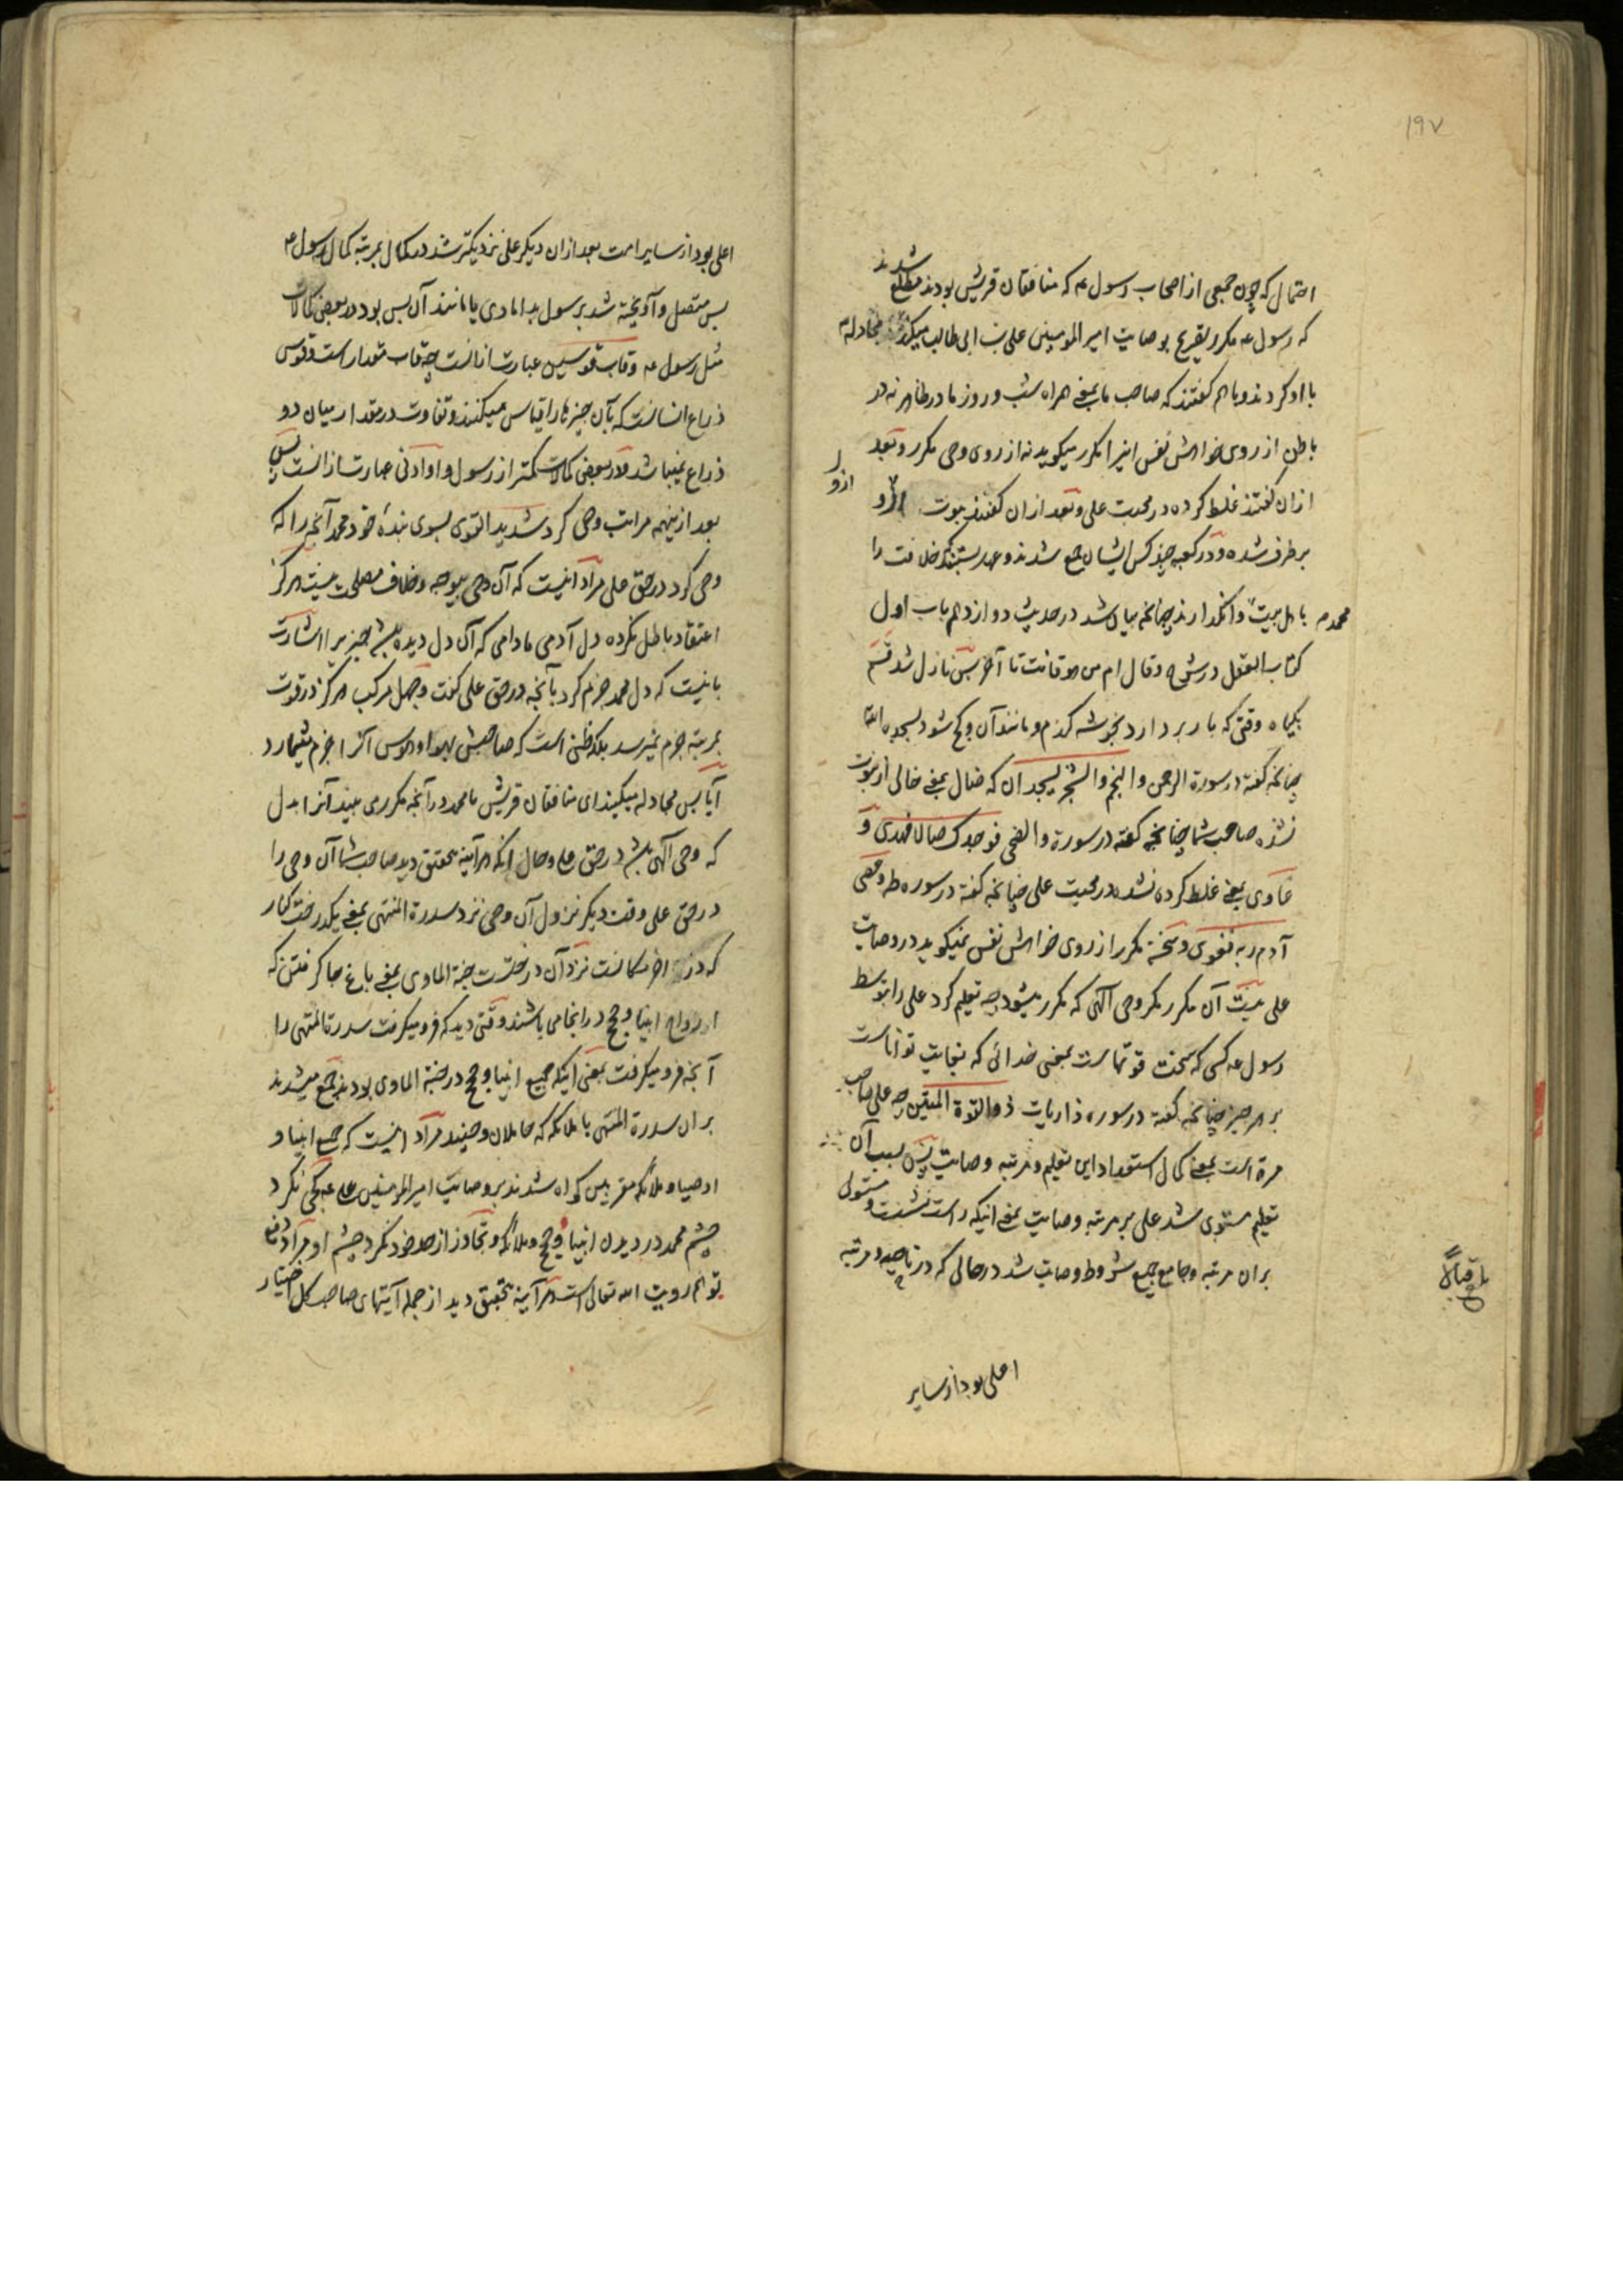 ۱۹۷
احتمال که چون جمعی از اصحاب رسول ع که منافقان قریش بودند مطلع شدند
که رسول ع مکرر تصریح بوصایت امیر المومنین علی بن ابی طالب میکند مجادلها
با او کردند و با هم گفتند که صاحب ما یعنی همراه شب و روز ما در ظاهر نه در
باطن از روی خواهش نفس اینرا مکرر میکوید نه از روی وحی مکرر و بعد
ازان گفتند غلط کرده در محبت علی و بعد ازان گفتند نبوت ازو
ازو
برطرف شده و در کعبه چند کس ایشان جمع شدند و عهد بستند که خلافت را
باهل بیت محمد ص وانکذارند چنانچه بیان شد در حدیث دوازدهم باب اول
کتاب العقل در شرح وقال امن هو قانت تا آخر پس نازل شد قسم
بگیاه وقتی که بار بردارد بخوشه گندم و مانند آن و کج شود بسجده الله
چنانچه گفته در سورة الرحمن والنجم والشجر یسجدان که ضال یعنی خالی از نبوت
نشده صاحب شما چنانچه گفته در سورة والضحی فوجدک ضالا فهدی و
غاوی یعنی غلط کرده نشده در محبت علی چنانچه گفته در سوره طه وعصی
آدم ربه فغوی و سخن مکرر از روی خواهش نفس نمیکوید در وصایت
علی نیست آن مکرر مکر وحی آلهی که مکرر میشود چه تعلیم کرد علی را بتوسط
رسول ع کسی که سخت قوتهاست یعنی خدائی که بغایت تواناست
بر هر چیز چنانچه گفته در سوره ذاریات ذو القوة المتین چه علی صاحب
مرة است یعنی کمال استعداد این تعلیم و مرتبه وصایت پس بسبب آن
تعلیم مستوی شد علی بر مرتبه وصایت یعنی اینکه راست نشست و مستولی
بران مرتبه و جامع جمیع شروط وصایت شد در حالی که در ناحیه و مرتبه
اعلی بود از سایر
اعلی بود از سایر امت بعد ازان دیکر علی نزدیکتر شد در کمال بمرتبه کمال رسول ع
پس متصل و آویخته شد برسول بدامادی یا مانند آن پس بود در بعض کمالات
مثل رسول ع و قاب قوسین عبارت ازانست چه قاب مقدار است و قوس
ذراع انسانست که بآن چیزها را قیاس میکنند و تفاوت در مقدار میان دو
ذراع نمیباشد و در بعض کمالات کمتر از رسول و او ادنی عبارت ازانست پس
بعد ازینهمه مراتب وحی کرد شدید القوی بسوی بندهٔ خود محمد آنچه را که
وحی کرد در حق علی مراد اینست که آن وحی بیوجه و خلاف مصلحت نیست هرکز
اعتقاد باطل نکرده دل آدمی مادامی که آن دل دیده باشد چیز را اشارت
باینست که دل محمد جزم کرد بآنچه در حق علی گفت و جهل مرکب هرکز در قوت
بمرتبه جزم نمیرسد بلکه ظنی است که صاحبش بهوا و هوس آنرا جزم میشمارد
آیا پس مجادله میکنید ای منافقان قریش با محمد در آنچه مکرر می بیند آنرا بدل
که وحی آلهی باشد در حق علی و حال آنکه هرآینه بتحقیق دید صاحب شما آن وحی را
در حق علی وقت دیکر نزول آن وحی نزد سدرة المنتهی یعنی یکدرخت کنار
که در آخر مکانست نزد آن درختست جنة الماوی یعنی باغ جا گرفتن که
ارواح انبیا و حجج در انجا می باشند وقتی دید که فرو میکرفت سدرة المنتهی را
آنچه فرو میکرفت یعنی اینکه جمیع انبیا و حجج در جنة الماوی بودند جمع میشدند
بران سدرة المنتهی با ملائکه که حاملان وحیند مراد اینست که جمیع انبیا و
اوصیا و ملائکه مقربین کواه شدند بر وصایت امیر المومنین علی ع کجی نکرد
چشم محمد در دیدن انبیا و حجج و ملائکه و تجاوز از حد خود نکرد چشم او مراد دفع
توهم رویت الله تعالی است هرآینه بتحقیق دید از جمله آیتهای صاحب کل اختیار